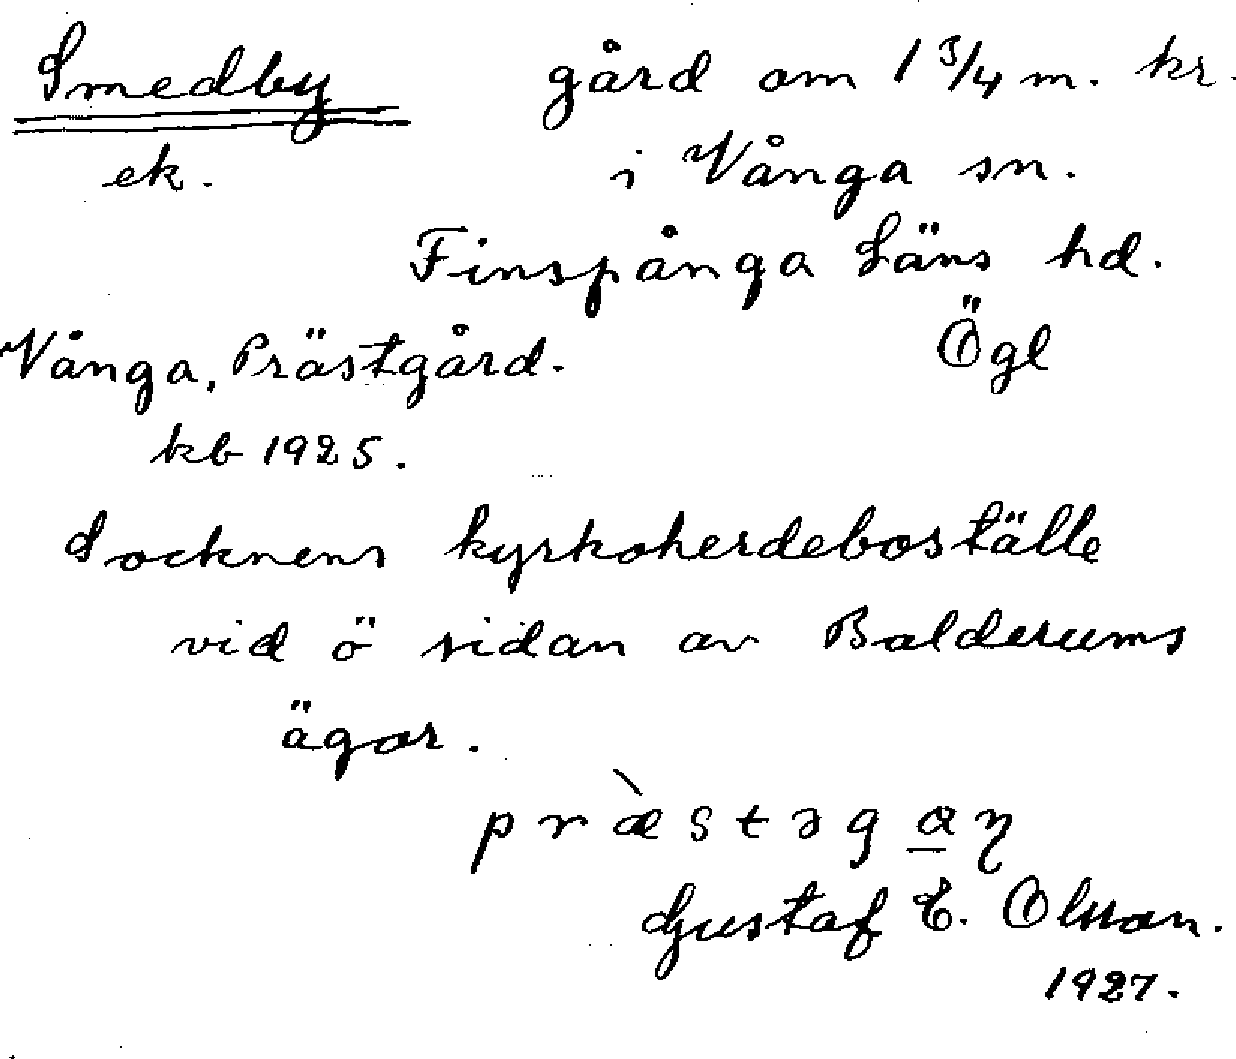 Smedby gård om 1 3/4 m. kr.
ek. i Vånga sn.
Finspånga Läns hd.
Vånga, Prästgård. Ögl
kb 1925.
Socknens kyrkoherdeboställe
vid ö sidan av Balderums
ägor.
præ̀stəgaɳ
Gustaf E. Olsson.
1927.